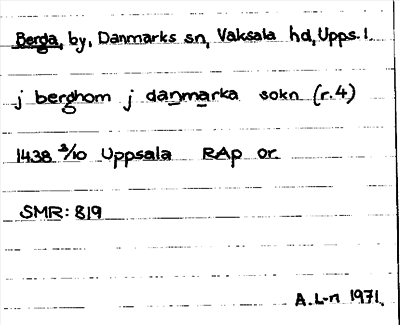 Berga, by, Danmarks sn, Vaksala hd, Upps. l.
j berghom j danmarka sokn (r. 4)
1438 3/10 Uppsala RAp or.
SMR: 819
A. L-n 1971.